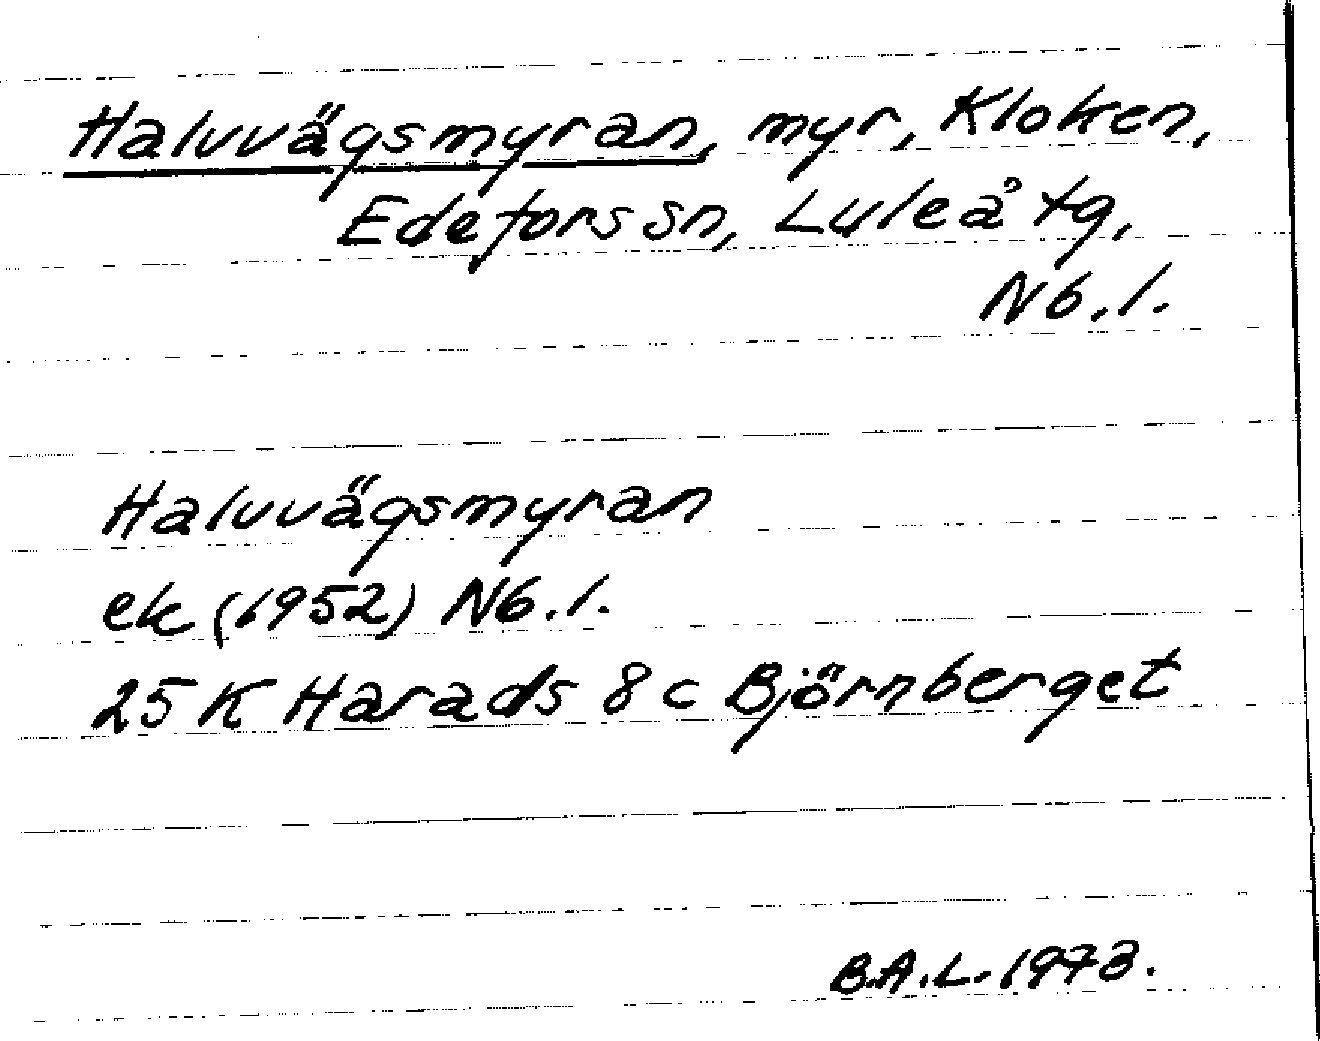 Halvvägsmyran, myr, Kloken,
Edefors sn, Luleå tg,
Nb.l.
Halvvägsmyran
ek (1952) Nb.l.
25 K Harads 8 c Björnberget
B.A.L. 1973.